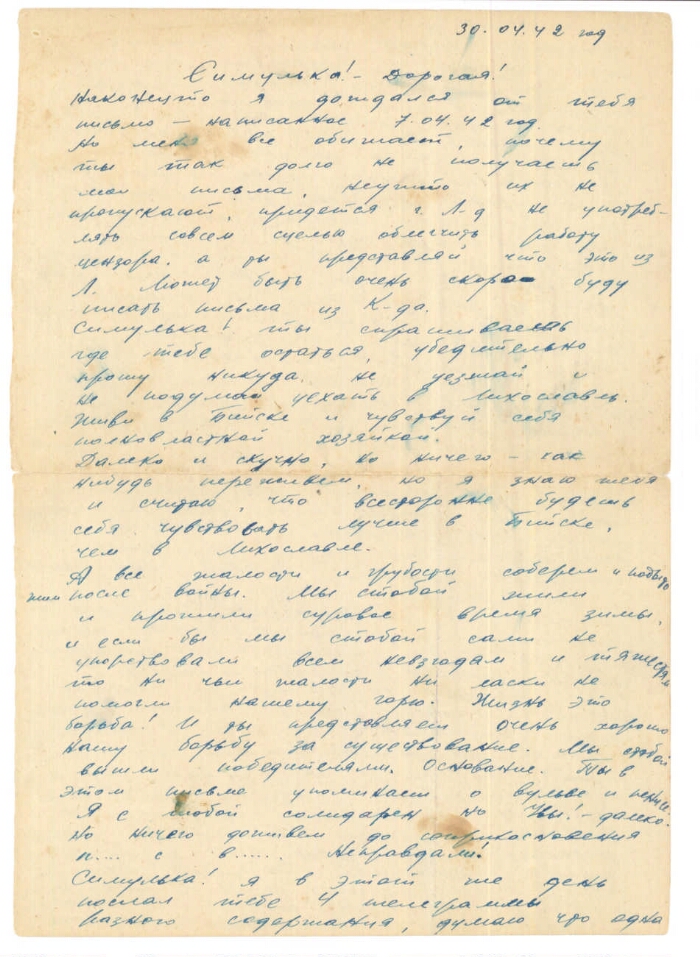 30.04.42 год
Симулька! - Дорогая!
Наконецто я дождался от тебя
письмо – написанное 7.04.42 год.
Но меня все обижает, почему
ты так долго не получаешь
мои письма, неужто их не
пропускают, придется г. Л-д не употреб-
лять совсем сцелью облегчить работу
цензора. а ты представляй что это из
Л. Может быть очень скоро буду
писать письма из К-да.
Симулька! ты спрашиваешь
где тебе остаться, убедительно
прошу никуда не уезжай и
не подумай уехать в Лихославль.
Живи в Бийске и чувствуй себя
полновластной хозяйкой.
Далеко и скучно, но ничего – как
нибудь переживем, но я знаю тебя
и считаю, что всесторонне будешь
себя чувствовать лучше в Бийске,
чем в Лихославле.
А все жалости и грубости соберем и
после войны. Мы стобой жили
и прожили суровое время зимы,
и если бы мы стобой сами не
упорствовали всем невзгодам и тяжестям
то ни чьи жалости ни ласки не
помогли нашему горю. Жизнь это
борьба! И ты представляем очень хорошо
нашу борьбу за существование. Мы стобой
вышли победителями. Основание. Ты в
этом письме упоминаеш о вульве и пенисе
Я с тобой солидарен но Увы! – далеко.
Но ничего доживем до соприкосновения
п.... с в..... Неправдали!
Симулька! Я в этот же день
послал тебе 4 телеграммы
разного содержания, думаю что одна